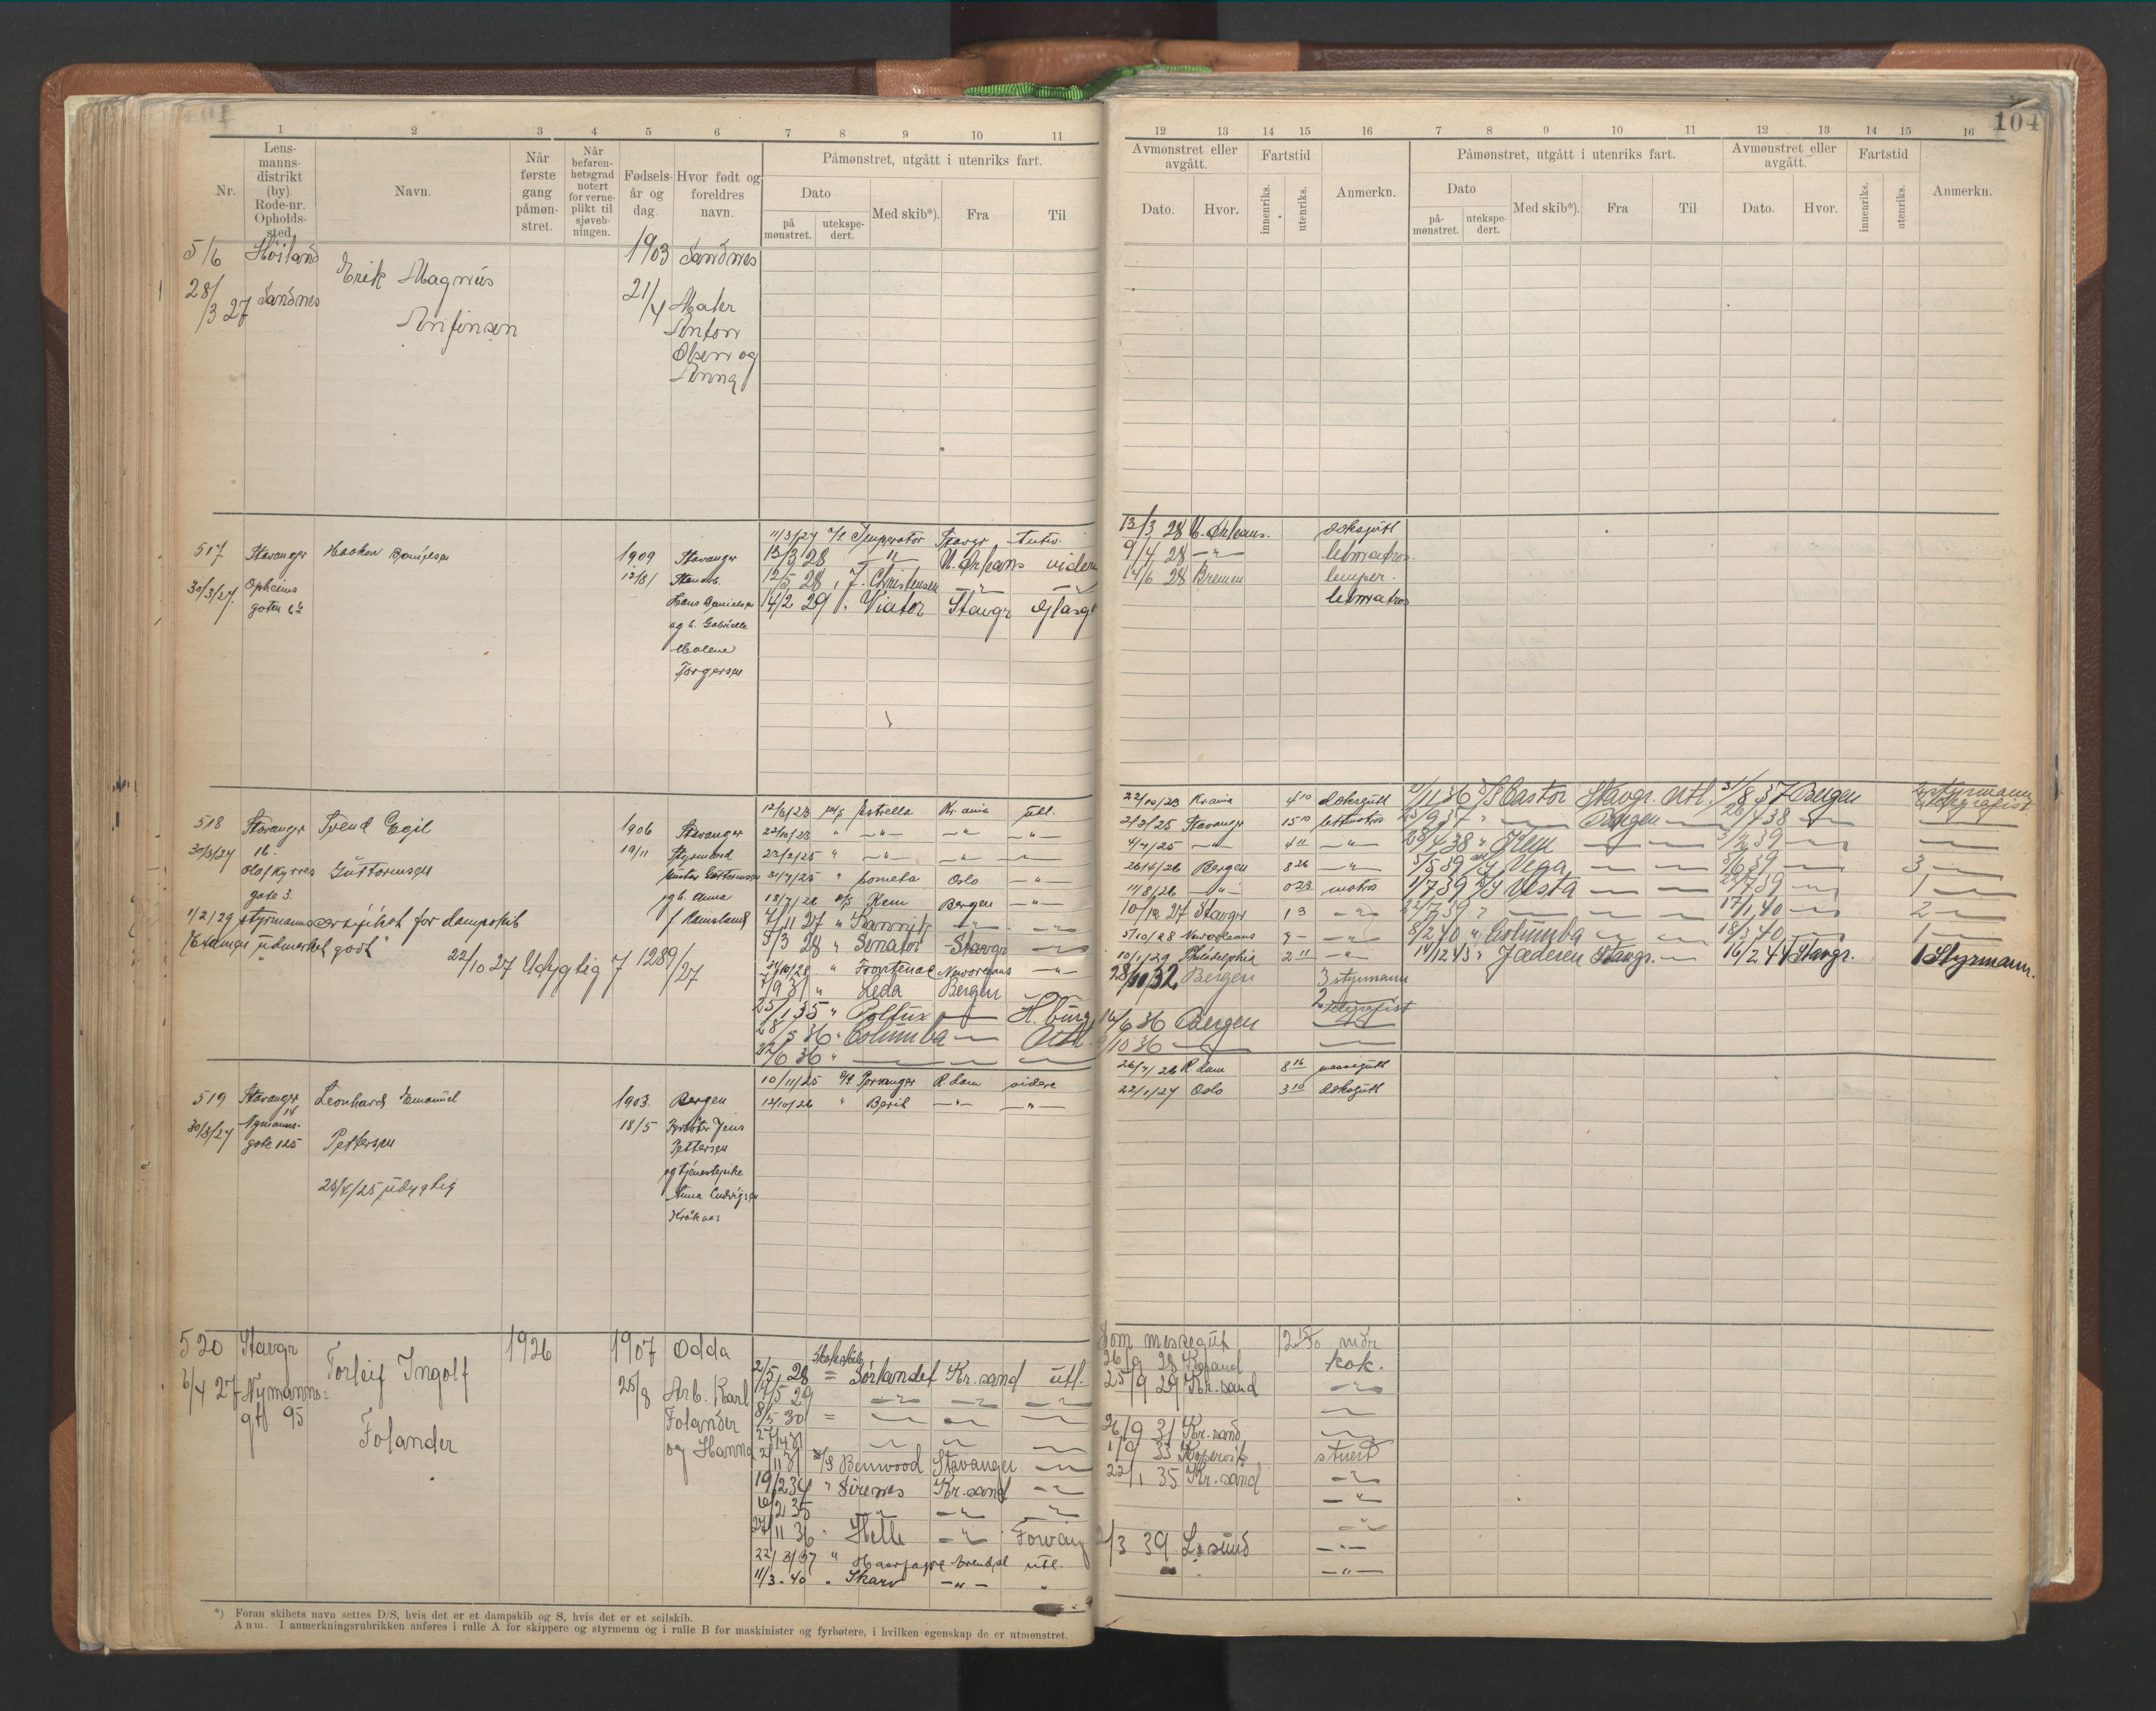 104
1 2 3 4 5 6 7 8 9 10 11
12 13 14 15 16 7 8 9 10 11 12 13 14 15 16
Nr.
Lens-
manns-
distrikt
(by).
Rode-nr.
Opholds-
sted.
Navn.
Når
første
gang
påmøn-
stret.
Når
befaren-
hetsgrad
notert
for verne-
plikt til
sjøveb-
ningen.
Fødsels-
år og
dag.
Hvor født og
foreldres
navn.
Påmønstret, utgått i utenriks fart.
Dato
på
mønstret.
utekspe-
dert.
Med skib*).
Fra
Til
Avmønstret eller
avgått.
Dato.
Hvor.
Fartstid
innenriks.
utenriks.
Anmerkn.
Påmønstret, utgått i utenriks fart.
Dato
på-
mønstret.
utekspe-
dert.
Med skib*).
Fra
Til
Avmønstret eller
avgått.
Dato.
Hvor.
Fartstid
innenriks.
utenriks.
Anmerkn.
5/6 Höiland 1903 Sandnes
28/3 27 Sandnes Erik Magnus 21/4 Maler
Anfinsen Anton
Olsen og
Anna
517 Stavanger Haakon Danielsen 1909 Stavanger
30/3/27. Opheims
gaten
Hans Danielsen
og h. Gabrielle
Malene
Torgersen
11/3/27 Imperator Stavgr
13/3 28 — " — N. Orleans videre
12/5 28 J. Christensen — " —
14/2 29 Viator Stavgr Glasg
13/3 28 N. Orleans. doksgutt
9/4 28 — " — letmatros.
14/6 28 Bremen lemper.
letmatros
518 Stavanger Trend Egil 1906 Stavanger
30/3/27 16. 19/11 Styrmand
Olaf Kyrres Guttormsen Guttormsen
gate 3. og h. Anna
f. Ramsland
1/2/29 styrmannscertifikat for dampskib
Eksamen "udmerket godt"
22/10 27 Udygtig 7 1289/27
12/6/23 m/s Estrella Kr.ania utl.
22/10/23 " — " — — " — — " —
23/2/25 " — " — — " —
21/7/25 " Pometa Oslo — " —
18/7/26 D/S Kem Bergen — " —
7/11 27 " Kannik — " —
5/3 28 " Senator Stavgr
24/10/28 " Frontenac Neworleans — " —
7/9 31 " Leda Bergen
25/1 35 " Pollux H.burg
28/5 36 " Columba Utl.
22/6 36 "
22/10/23 Krania 4 10 doksgutt
2/2/25 Stavanger 15 10 lettmatros
4/7/25 — " — 4 11 — " —
26/4/26 Bergen 8 26 — " —
11/8/26 — " — 0 23 matros
10/12 27 Stavgr 1 3 — " —
5/10/28 Neworleans 7 — " —
10/1/29 Philadelphia 2 11 — " —
28/10/32 Bergen 3 styrmann
2 telegrafist
16/6 36 Bergen
9/10 36
21/11 36 D/S Castor Stavgr. Utl. 31/8 37 Bergen 2 styrmann & telegrafist
25/9 37 " Bergen 28/4 38
28/4 38 " Iren 3/2 39
5/5 39 M/S Vega 3/6 39 3
1/7 39 M/S Vesta 22/7 39 1
22/7 39 " 17/1 40 2
8/2 40 " Columba 18/3 40 1
14/12 43 " Jæderen Stavgr. 16/2 44 Stavgr. 1 Styrmann.
519 Stavanger Leonhard Emanuel 1903 Bergen
18
30/3/27 Nymanns- 18/5 Fyrbøter Jens
gate 125 Pettersen Pettersen
og tjenestepike
23/4/25 udygtig Anna Ludvigsen
Kråkaas
10/11/25 Porsanger R.dam videre
12/10/26 " Beril — " — — " —
26/7/26 R.dam 8 16 messegutt
22/1/27 Oslo 3 10 doksgutt
520 Stavgr Torleif Ingolf 1926 1907 Odda
6/4 27 Nymanns= 25/8 Arb. Karl
gt 95 Folander Folander
og Hanna
Skoleskib
2/5 28 = Sörlandet Kr.sand utl.
14/5 29 — " — — " — — " —
8/5 30 =
27/4 31
2/11 31 M/S Benwood Stavanger
19/2 34 " Sirenes Kr.sand — " —
16/2 35 — " — — " — — " —
27/11 36 " Helle — " —
22/8/37 " Haarfagre utl.
11/3-40 " Skarv — " — "
Som messegut
26/9 28 Kr.sand kok.
25/9 29 Kr.sand — " —
26/9 31 Kr.sand
1/9 33 Kopervik stuert
22/1 35 Kr.sand — " —
— " —
— " —
2/3 39 L.sund — " —
— " —
*) Foran skibets navn settes D/S, hvis det er et dampskib og S, hvis det er et seilskib.
Anm. I anmerkningsrubrikken anføres i rulle A for skippere og styrmenn og i rulle B for maskinister og fyrbøtere, i hvilken egenskap de er utmønstret.